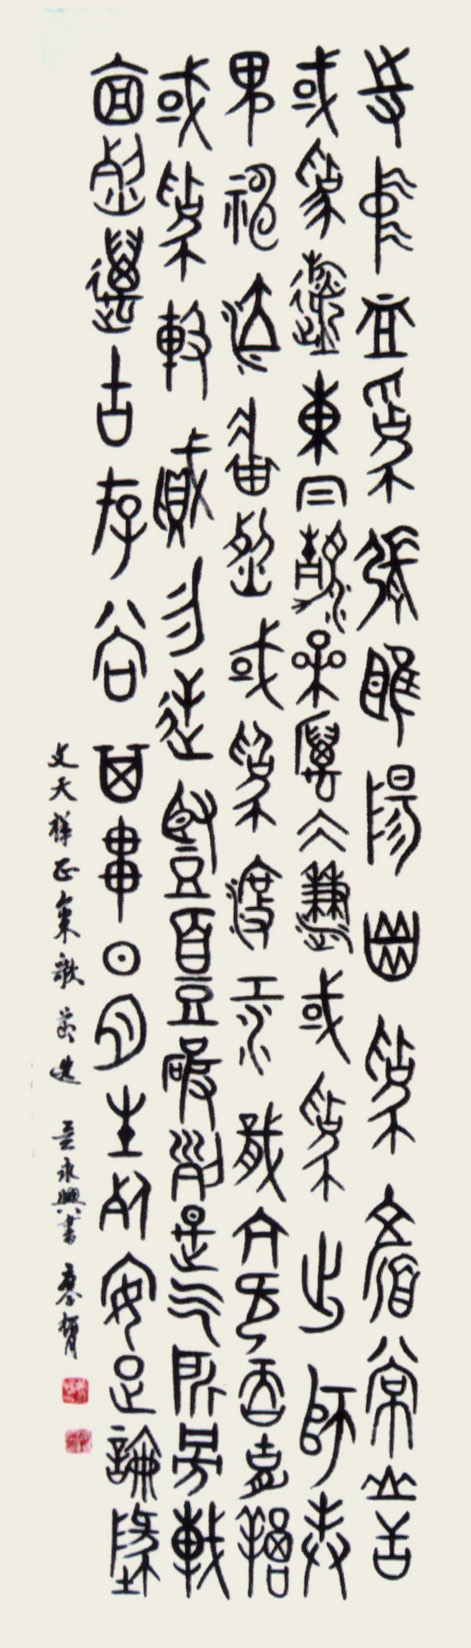 侍中血為張睢陽齒為顏常山舌
或為遼東帽清操厲冰雪或為出師表
鬼神泣壯烈或為渡江楫慷慨吞胡羯
或為擊賊笏逆豎頭破裂是氣所旁薄
凜烈萬古存當其貫日月生死安足論地
文天祥正氣歌節選 吳永興書